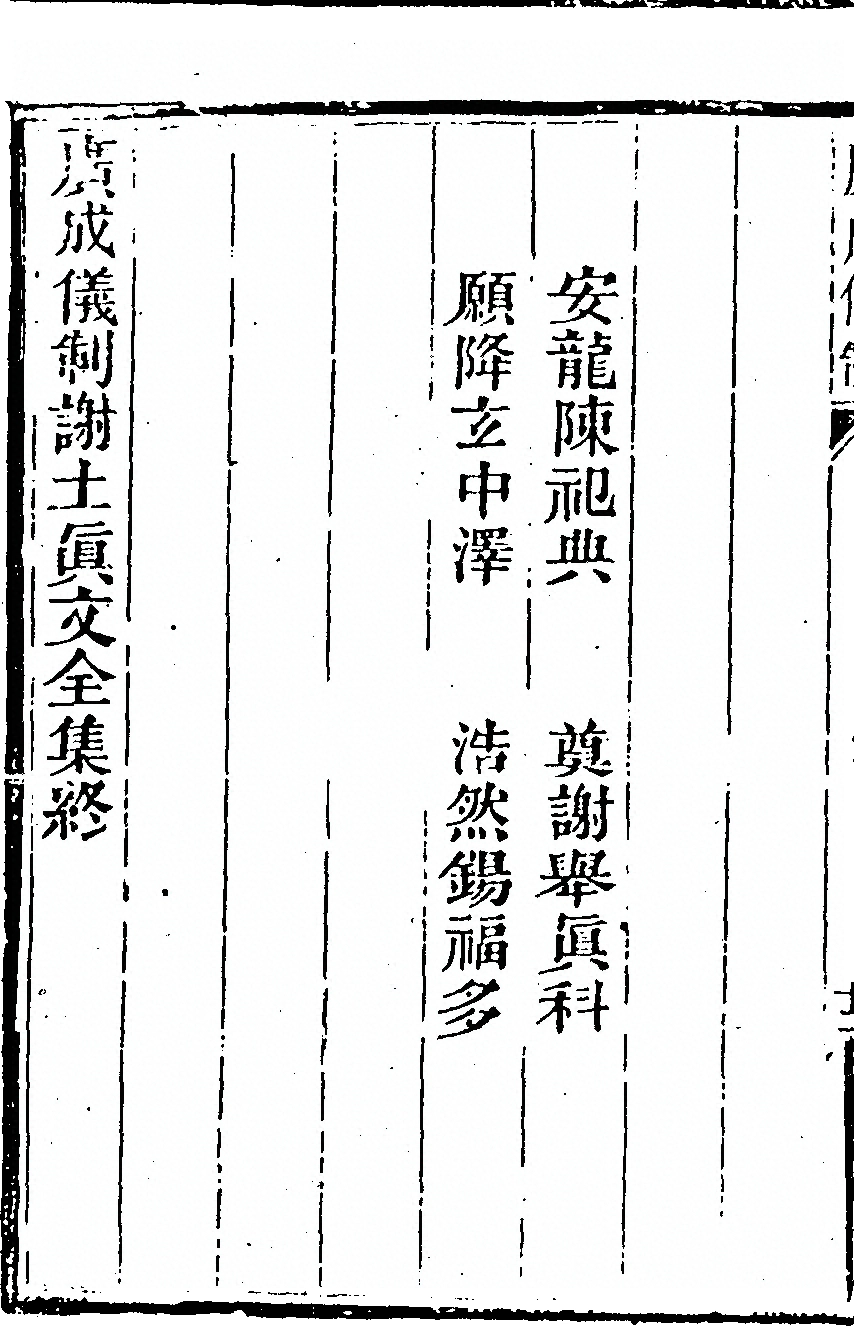 安龍陳祀典　奠謝舉眞科
願降玄中澤　浩然錫福多
廣成儀制謝土眞文全集終